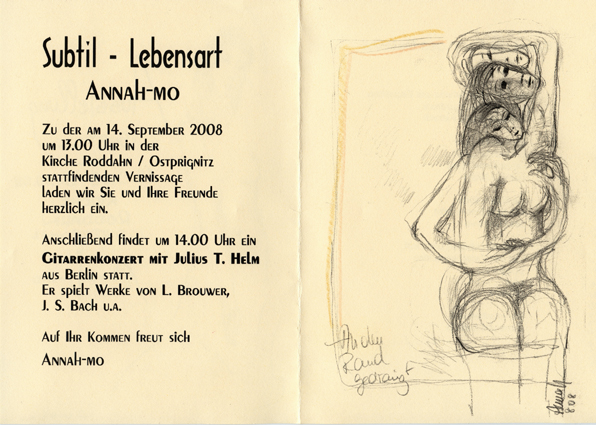 Subtil - Lebensart
Annah-mo
Zu der am 14. September 2008
um 13.00 Uhr in der
Kirche Roddahn / Ostprignitz
stattfindenden Vernissage
laden wir Sie und Ihre Freunde
herzlich ein.
Anschließend findet um 14.00 Uhr ein
Gitarrenkonzert mit Julius T. Helm
aus Berlin statt.
Er spielt Werke von L. Brouwer,
J. S. Bach u.a.
Auf Ihr Kommen freut sich
Annah-mo
An den
Rand
gedrängt
808